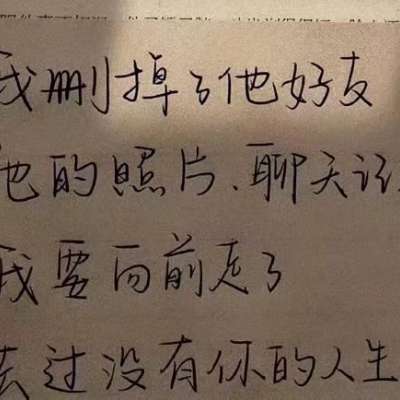 我删掉了他好友
他的照片、聊天记
我要向前走了
去过没有你的人生